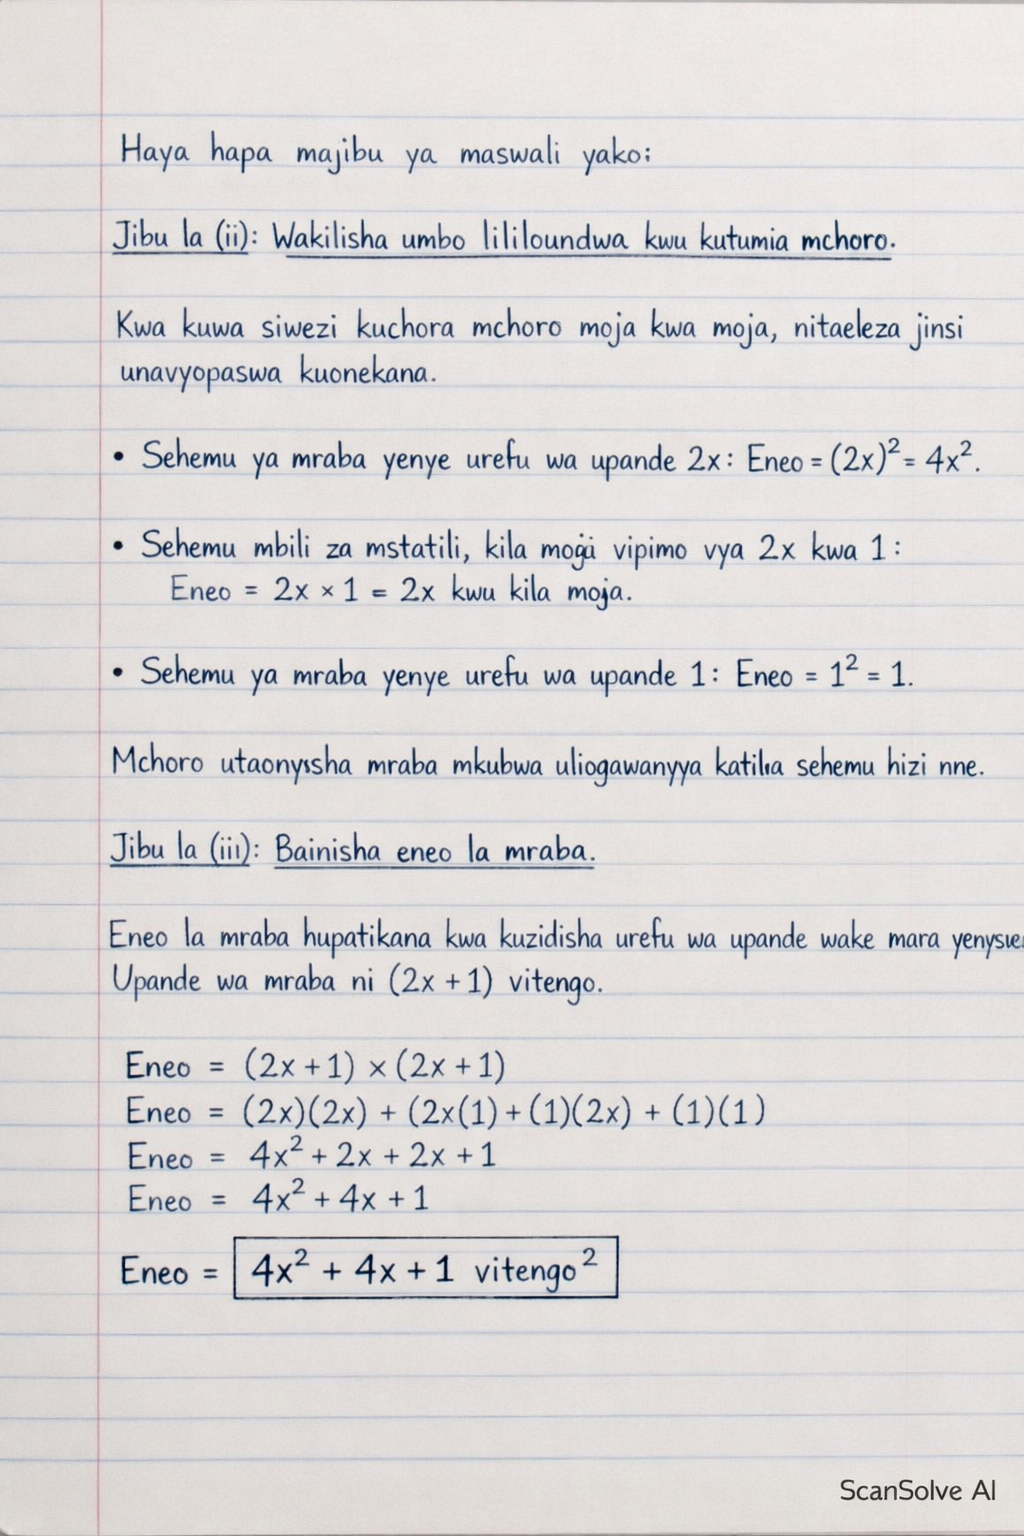 Haya hapa majibu ya maswali yako:
Jibu la (ii): Wakilisha umbo lililoundwa kwu kutumia mchoro.
Kwa kuwa siwezi kuchora mchoro moja kwa moja, nitaeleza jinsi
unavyopaswa kuonekana.
• Sehemu ya mraba yenye urefu wa upande 2x: Eneo = (2x)² = 4x².
• Sehemu mbili za mstatili, kila vipimo vya 2x kwa 1:
Eneo = 2x × 1 = 2x kwu kila moja.
• Sehemu ya mraba yenye urefu wa upande 1: Eneo = 1² = 1.
Mchoro mraba mkubwa uliogawanyya sehemu hizi nne.
Jibu la (iii): Bainisha eneo la mraba.
Eneo la mraba hupatikana kwa kuzidisha urefu wa upande wake mara
Upande wa mraba ni (2x + 1) vitengo.
Eneo = (2x + 1) × (2x + 1)
Eneo = (2x)(2x) + (2x(1) + (1)(2x) + (1)(1)
Eneo = 4x² + 2x + 2x + 1
Eneo = 4x² + 4x + 1
Eneo = 4x² + 4x + 1 vitengo²
ScanSolve AI